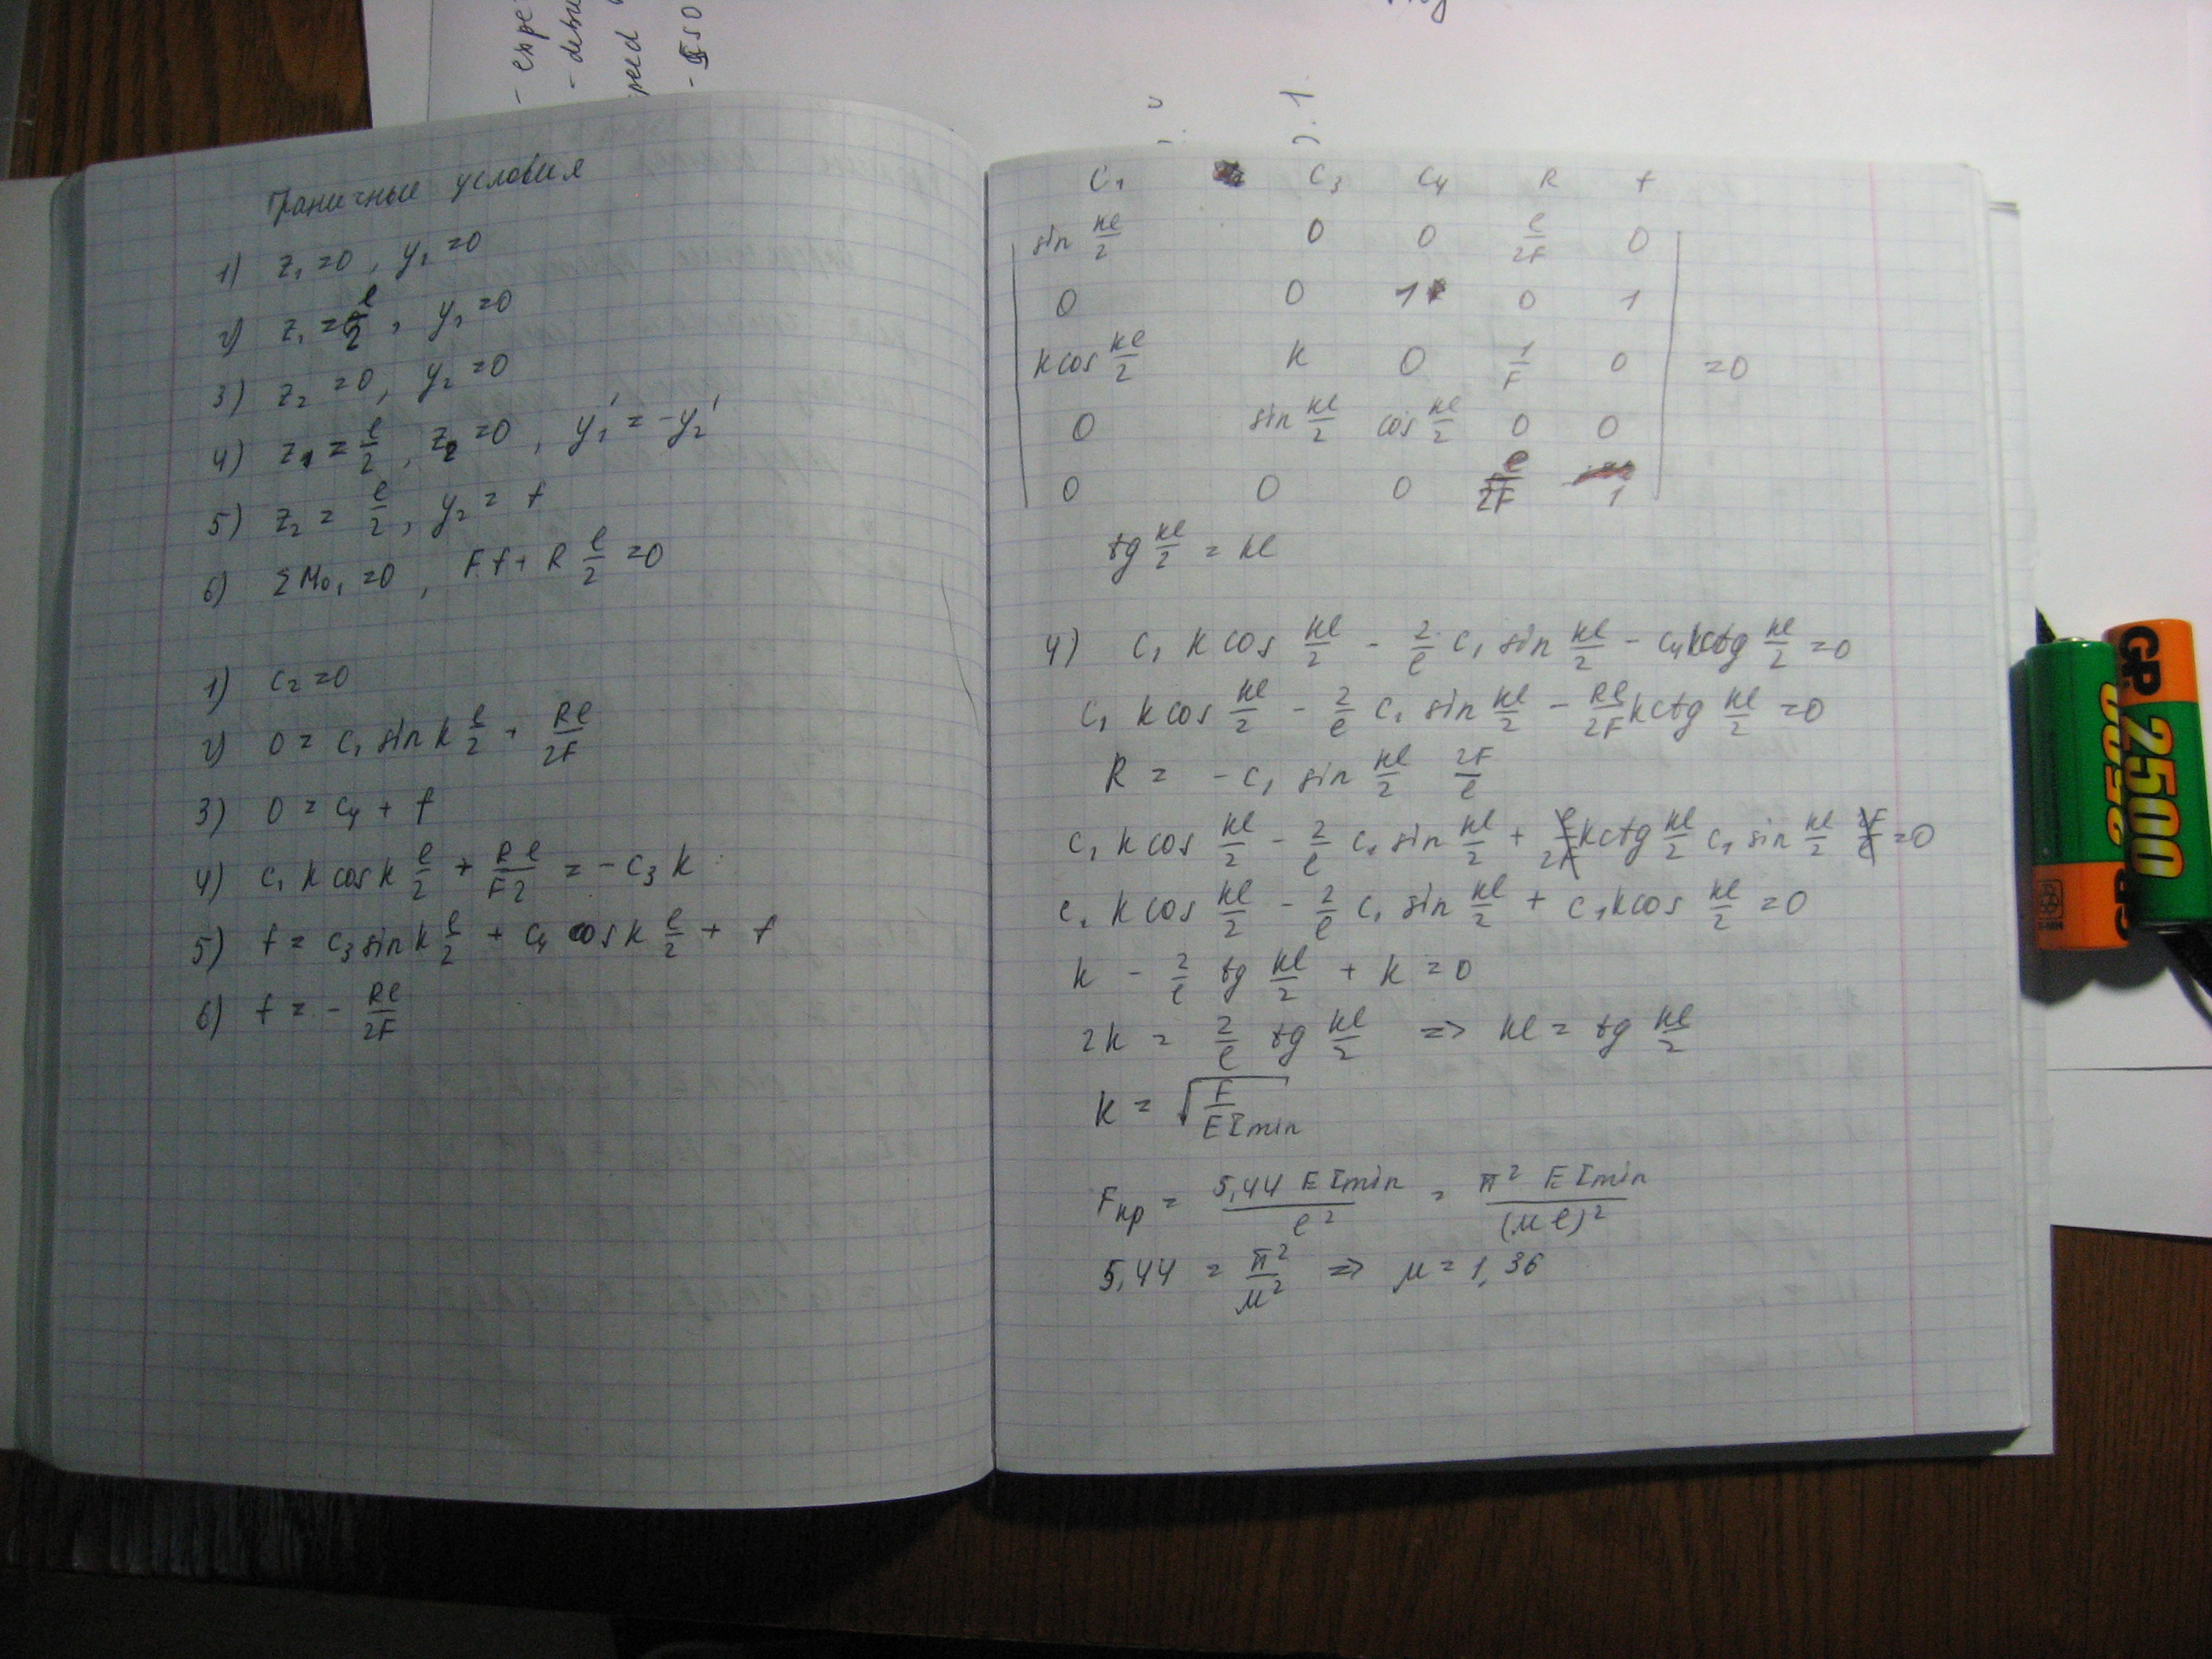 - expe
- desu
speed
- ISO
Граничные условия
1) z₁ = 0, y₁ = 0
2) z₁ = l/2, y₁ = 0
3) z₂ = 0, y₂ = 0
4) z₁ = l/2, z₂ = 0, y₁' = -y₂'
5) z₂ = l/2, y₂ = f
6) ΣM₀₁ = 0, F f + R l/2 = 0
1) c₂ = 0
2) 0 = c₁ sin k l/2 + Rl/2F
3) 0 = c₄ + f
4) c₁ k cos k l/2 + Rl/F2 = -c₃ k
5) f = c₃ sin k l/2 + c₄ cos k l/2 + f
6) f = - Rl/2F
c₁ c₃ c₄ R f
sin kl/2 0 0 l/2F 0
0 0 1 0 1
k cos kl/2 k 0 1/F 0 = 0
0 sin kl/2 cos kl/2 0 0
0 0 0 l/2F 1
tg kl/2 = kl
4) c₁ k cos kl/2 - 2/l c₁ sin kl/2 - c₄ k ctg kl/2 = 0
c₁ k cos kl/2 - 2/l c₁ sin kl/2 - Rl/2F k ctg kl/2 = 0
R = -c₁ sin kl/2 2F/l
c₁ k cos kl/2 - 2/l c₁ sin kl/2 + l/2F k ctg kl/2 c₁ sin kl/2 2F/l = 0
c₁ k cos kl/2 - 2/l c₁ sin kl/2 + c₁ k cos kl/2 = 0
k - 2/l tg kl/2 + k = 0
2k = 2/l tg kl/2 => kl = tg kl/2
k = √(F/EImin)
Fкр = 5,44 EImin/l² = π² EImin/(μl)²
5,44 = π²/μ² => μ = 1,36
GP 2500